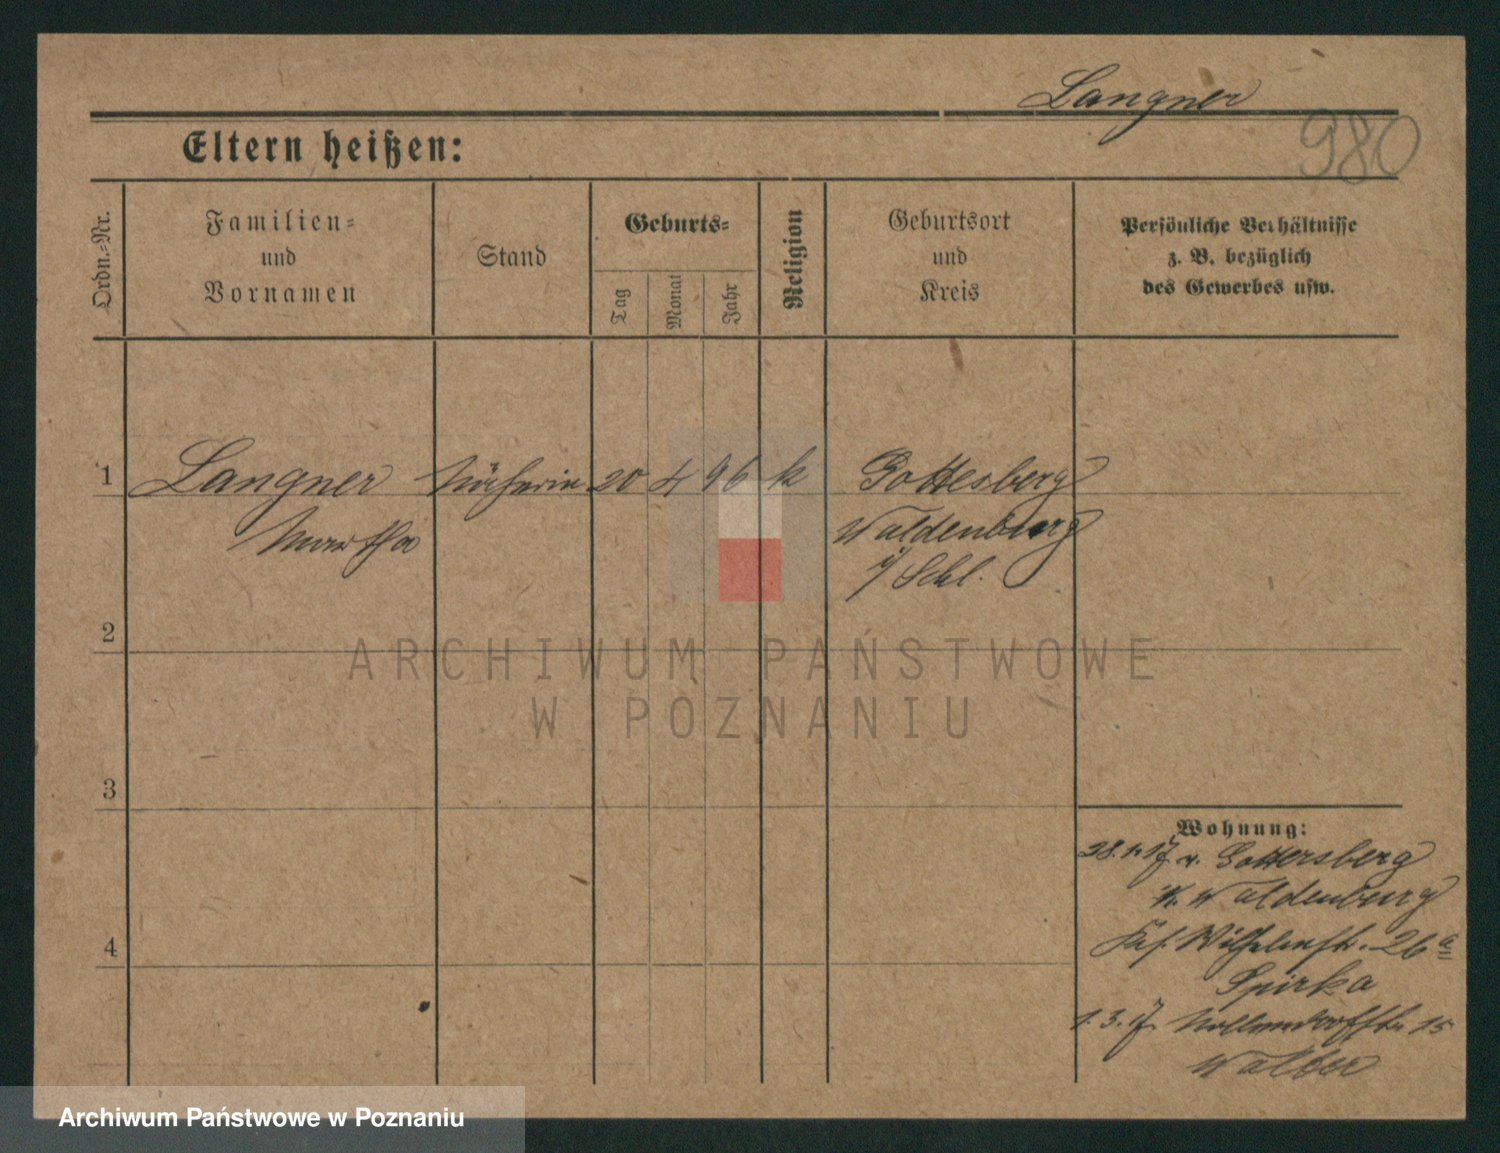 Langner
980
Eltern heißen:
Ordn.-Nr.
Familien-
und
Vornamen
Stand
Geburts-
Tag
Monat
Jahr
Religion
Geburtsort
und
Kreis
Persönliche Verhältnisse
z. B. bezüglich
des Gewerbes usw.
1
Langner
Martha
20
4
96
k
Gottesberg
Waldenburg
i/ Schl.
2
ARCHIWUM PAŃSTWOWE
W POZNANIU
3
Wohnung:
28. 17 v. Gottersberg
K. Waldenburg
Wilhelmstr. 26a
Spirka
1. 3. 17 Nollendorfstr. 15
4
Archiwum Państwowe w Poznaniu